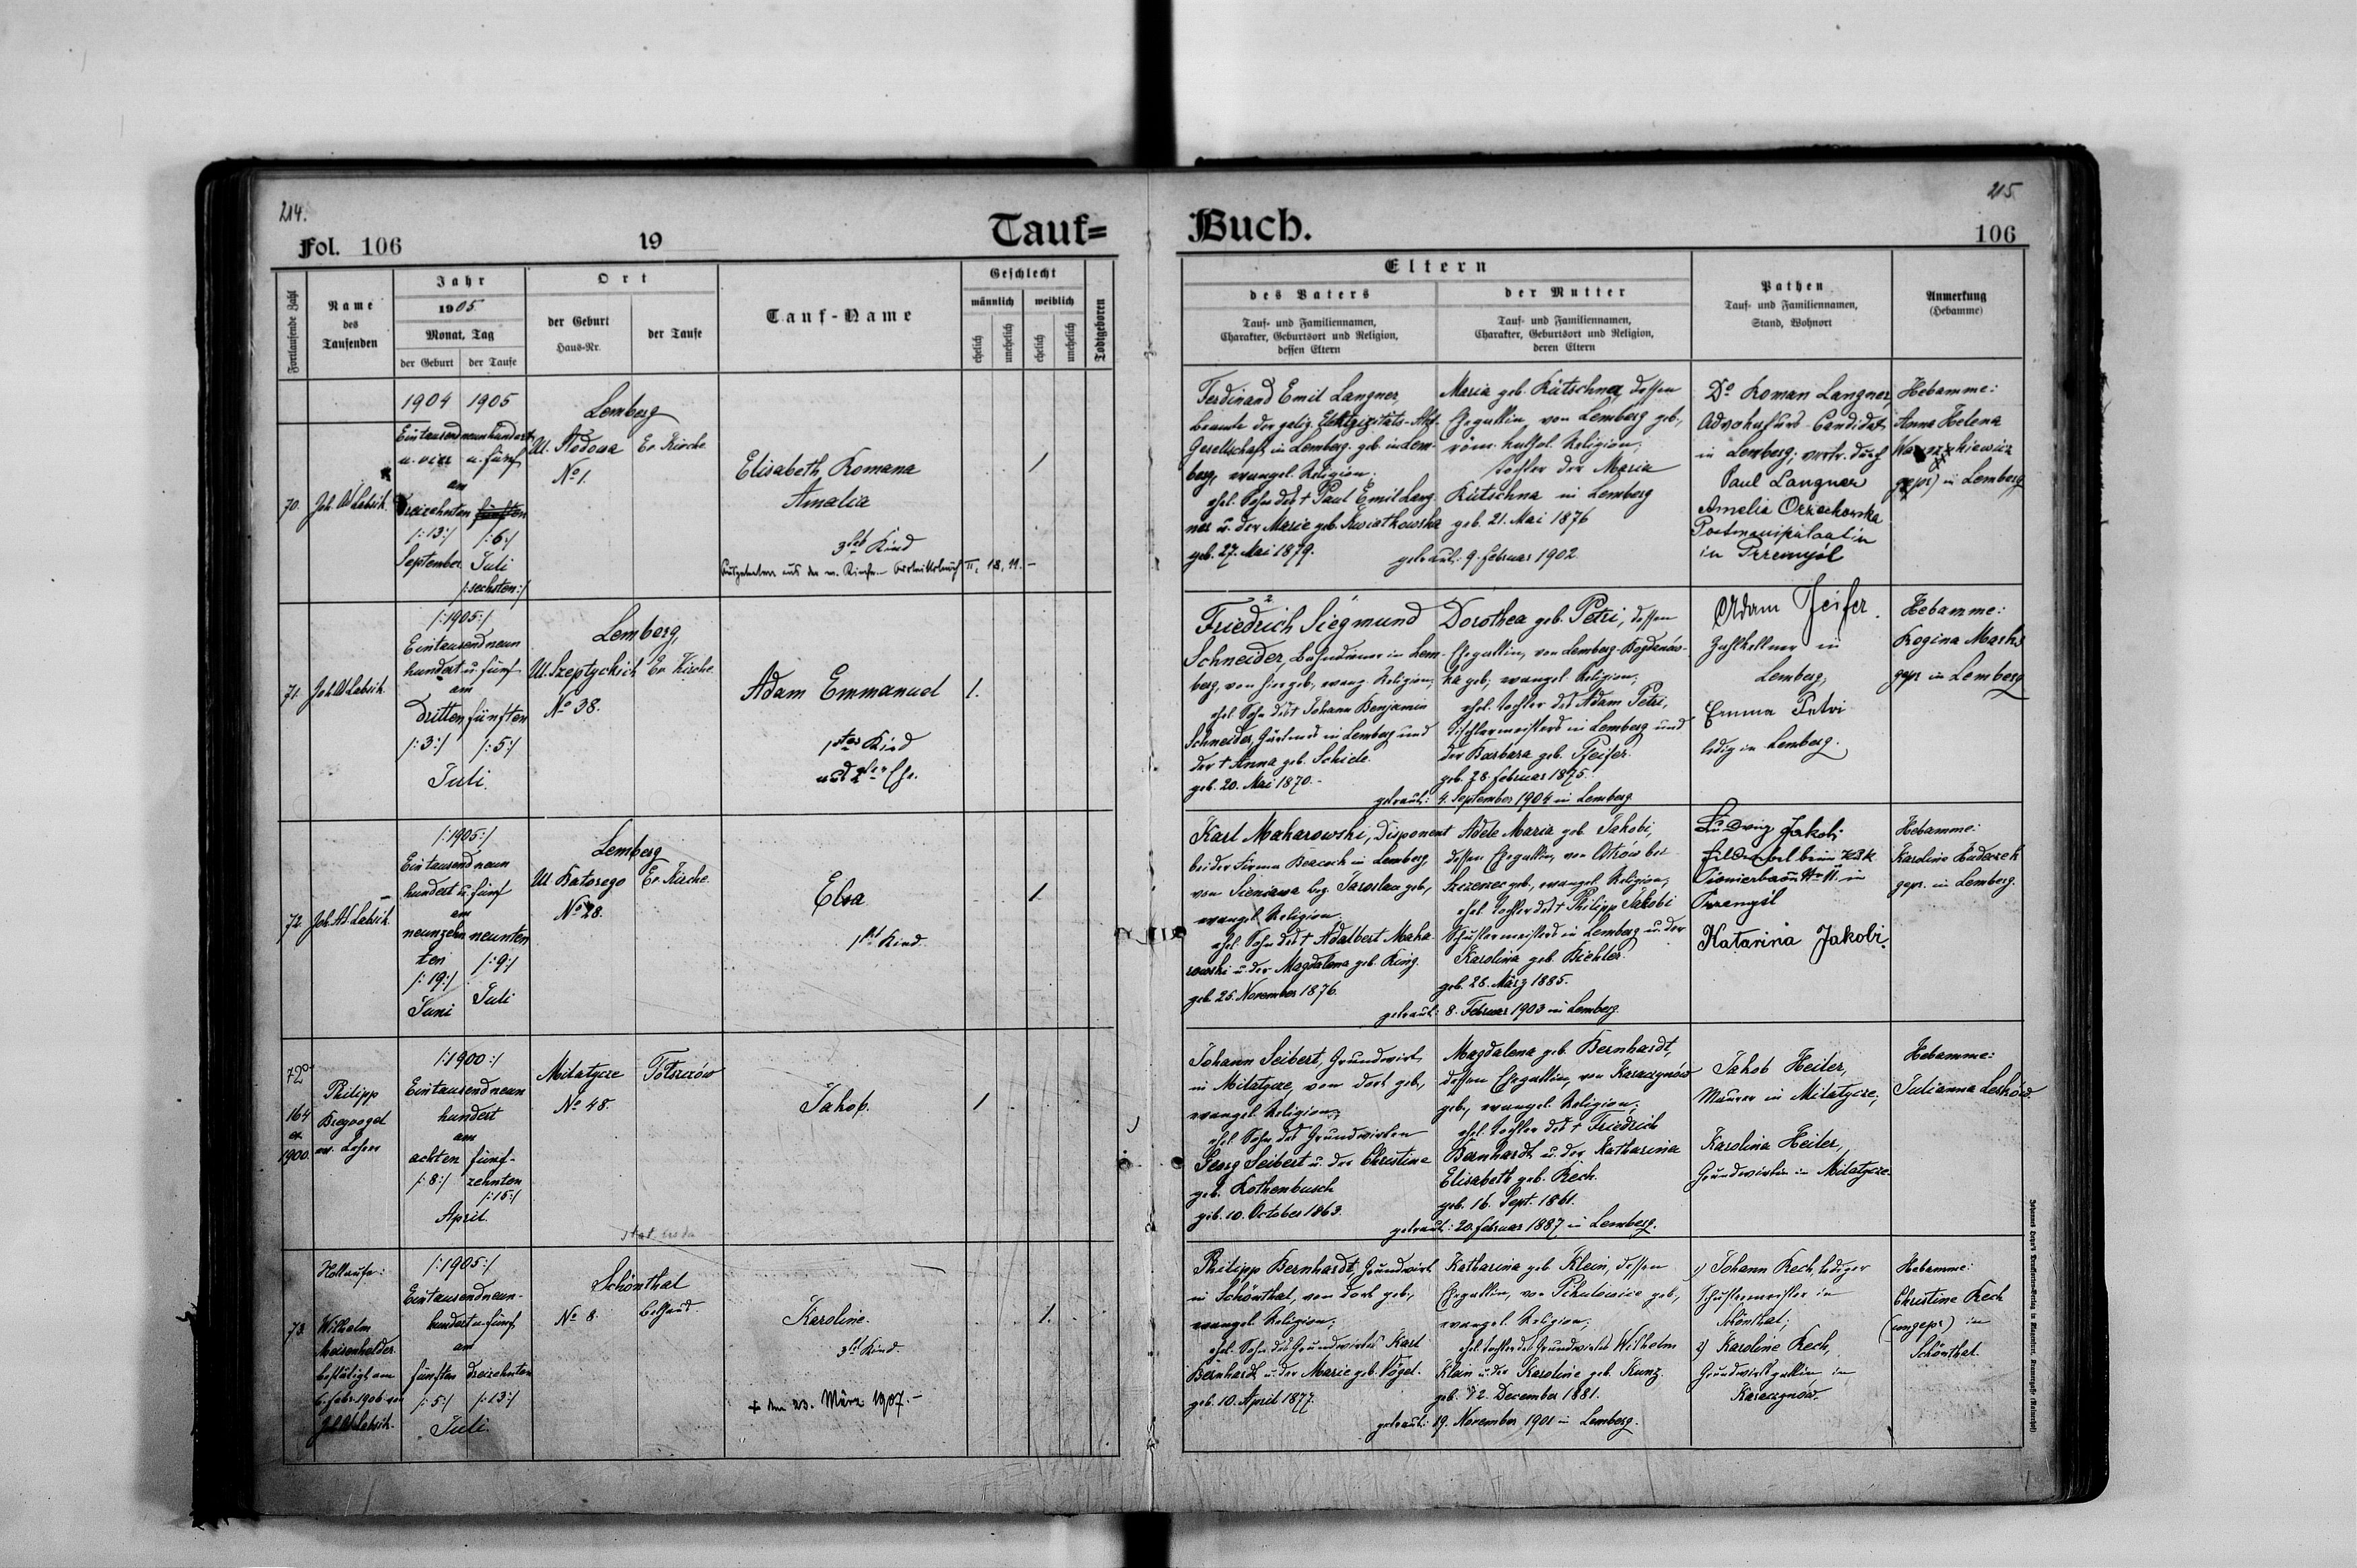 214.
215
Fol. 106
19
Tauf=
Buch.
106
Fortlaufende Zahl
Name
des
Taufenden
Jahr
1905.
Monat, Tag
der Geburt
der Taufe
Ort
der Geburt
Haus-Nr.
der Taufe
Tauf-Name
Geschlecht
männlich
weiblich
ehelich
unehelich
ehelich
unehelich
Todtgeboren
Eltern
des Vaters
Tauf- und Familiennamen,
Charakter, Geburtsort und Religion,
dessen Eltern
der Mutter
Tauf- und Familiennamen,
Charakter, Geburtsort und Religion,
deren Eltern
Pathen
Tauf- und Familiennamen,
Stand, Wohnort
Anmerkung
(Hebamme)
70.
1904 1905
Eintausendneunhundert
u. vier u. fünf
am
Dreizehnten fünften
/:13:/ /:6:/
September Juli
/:sechsten:/
Lemberg
No 1.
Ev. Kirche
Elisabeth Romana
Amalia
3tes Kind
1
Ferdinand Emil Langner,
Beamte der galiz. Elektrizitäts-Akt.
Gesellschaft in Lemberg, geb. in Lem-
berg, evangel. Religion;
ehel. Sohn des † Paul Emil Lang-
ner u. der Marie geb. Kwiatkowska
geb. 27. Mai 1879.
Maria geb. Kutschna, dessen
Ehegattin, von Lemberg geb.,
röm. kathol. Religion;
Tochter der Maria
Kutschna in Lemberg
geb. 21. Mai 1876
getraut: 9. Februar 1902.
Dr Roman Langner,
Advokaturs-Candidat
in Lemberg; vertr. durch
Paul Langner
Amelia Orzechowska
in Przemyśl
Hebamme:
Anna Helena
gepr) in Lemberg
71.
/:1905:/
Eintausendneun
hundert u. fünf
am
dritten fünften
/:3:/ /:5:/
Juli.
Lemberg
Ul. Szeptyckich Ev. Kirche
No 38.
Adam Emmanuel
1stes Kind
aus 2ter Ehe.
1.
Friedrich Siegmund
Schneider, Bahndiener in Lem-
berg, von hier geb., evang. Religion;
ehel. Sohn des † Johann Benjamin
Schneider, Gärtners in Lemberg und
der † Anna geb. Schide.
geb. 20. Mai 1870.-
Dorothea geb. Petri, dessen
Ehegattin, von Lemberg-Bogdanów-
ka geb., evangel. Religion;
ehel. Tochter des Adam Petri,
Tischlermeisters in Lemberg und
der Barbara geb. Pfeifer.
geb. 28. Februar 1875.
getraut: 4. September 1904 in Lemberg
Adam Pfeifer.
Zahlkellner in
Lemberg;
Emma Petri
ledig in Lemberg.
Hebamme:
Regina Marks
gepr. in Lemberg
72.
/:1905:/
Eintausendneun
hundert u. fünf
am
neunzehn neunten
ten /:9:/
/:19:/ Juli
Juni
Lemberg
Ul. Batorego Ev. Kirche.
No 28.
Elsa
1stes Kind.
1.
Karl Makarowski, Disponent
bei der Firma Beacock in Lemberg,
von Sieniawa bez. Jaroslau geb.,
evangel. Religion.
ehel. Sohn des † Adalbert Maka-
rowski u. der Magdalena geb. King.
geb. 25. November 1876.
Adele Maria geb. Jakobi,
dessen Ehegattin, von Ostrów bei
Szczerzec geb., evangel. Religion;
ehel. Tochter des † Philipp Jakobi
Schustermeisters in Lemberg u. der
Karolina geb. Biehler.
geb. 28. März 1885.
getraut: 8. Februar 1903 in Lemberg.
Ludwig Jakobi
Pionierbaon No 11. in
Przemyśl
Katarina Jakobi.
Hebamme:
Karoline Hudeczek
gepr. in Lemberg.
72a
164
ex
1900.
Philipp
Bregvogel
ev. Lehrer
/:1900:/
Eintausendneun
hundert
am
achten fünf-
/:8:/ zehnten
/:15:/
April.
Milatycze
No 48.
Jakob.
1
Johann Seibert, Grundwirt
in Milatycze, von dort geb.,
evangel. Religion;
ehel. Sohn des Grundwirten
Georg Seibert u. der Christine
geb. Rothenbusch
geb. 10. October 1863.
Magdalena geb. Bernhardt,
dessen Ehegattin, von Karaczynów
geb., evangel. Religion;
ehel. Tochter des † Friedrich
Bernhardt u. der Katharina
Elisabeth geb. Rech.
geb. 16. Sept. 1861.
getraut: 20. Februar 1887 in Lemberg.
Jakob Heiler,
Maurer in Milatycze;
Karolina Heiler,
Grundwirtin in Milatycze.
Hebamme:
Julianna Lesków.
73.
Nottaufe:
Wilhelm
Meisenhelder.
bestätigt am
6. Febr. 1906 von
/:1905:/
Eintausendneun-
hundert u. fünf
am
fünften dreizehnten
/:5:/ /:13:/
Juli.
Schönthal
No 8. Bethaus.
Karoline.
3tes Kind
† den 23. März 1907.-
1.
Philipp Bernhardt, Grundwirt
in Schönthal, von dort geb.,
evangel. Religion;
ehel. Sohn des Grundwirtes Karl
Bernhardt u. der Marie geb. Vögel.
geb. 10. April 1877.
Katharina geb. Klein, dessen
Ehegattin, von Pikulowice geb.,
evangel. Religion;
ehel. Tochter des Grundwirtes Wilhelm
Klein u. der Karoline geb. Kunz.
geb. 2. December 1881.
getraut: 19. November 1901 in Lemberg.
1) Johann Rech, lediger
Schustermeister in
Schönthal;
2) Karoline Rech,
Grundwirtsgattin in
Karaczynów.
Hebamme:
Christine Rech
(ungepr) in
Schönthal.